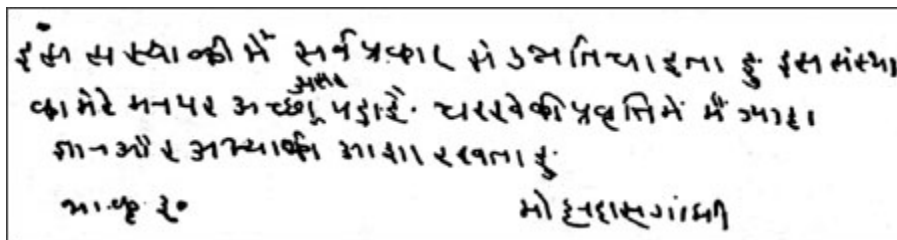 इस संस्था की मैं सर्व प्रकार से उन्नति चाहता हुं इस संस्था
का मेरे मन पर अच्छा असर पड़ा है. चरखे की प्रवृत्ति में मैं ज्यादा
ज्ञान और अभ्यास की आशा रखता हुं.
मोहनदास गांधी